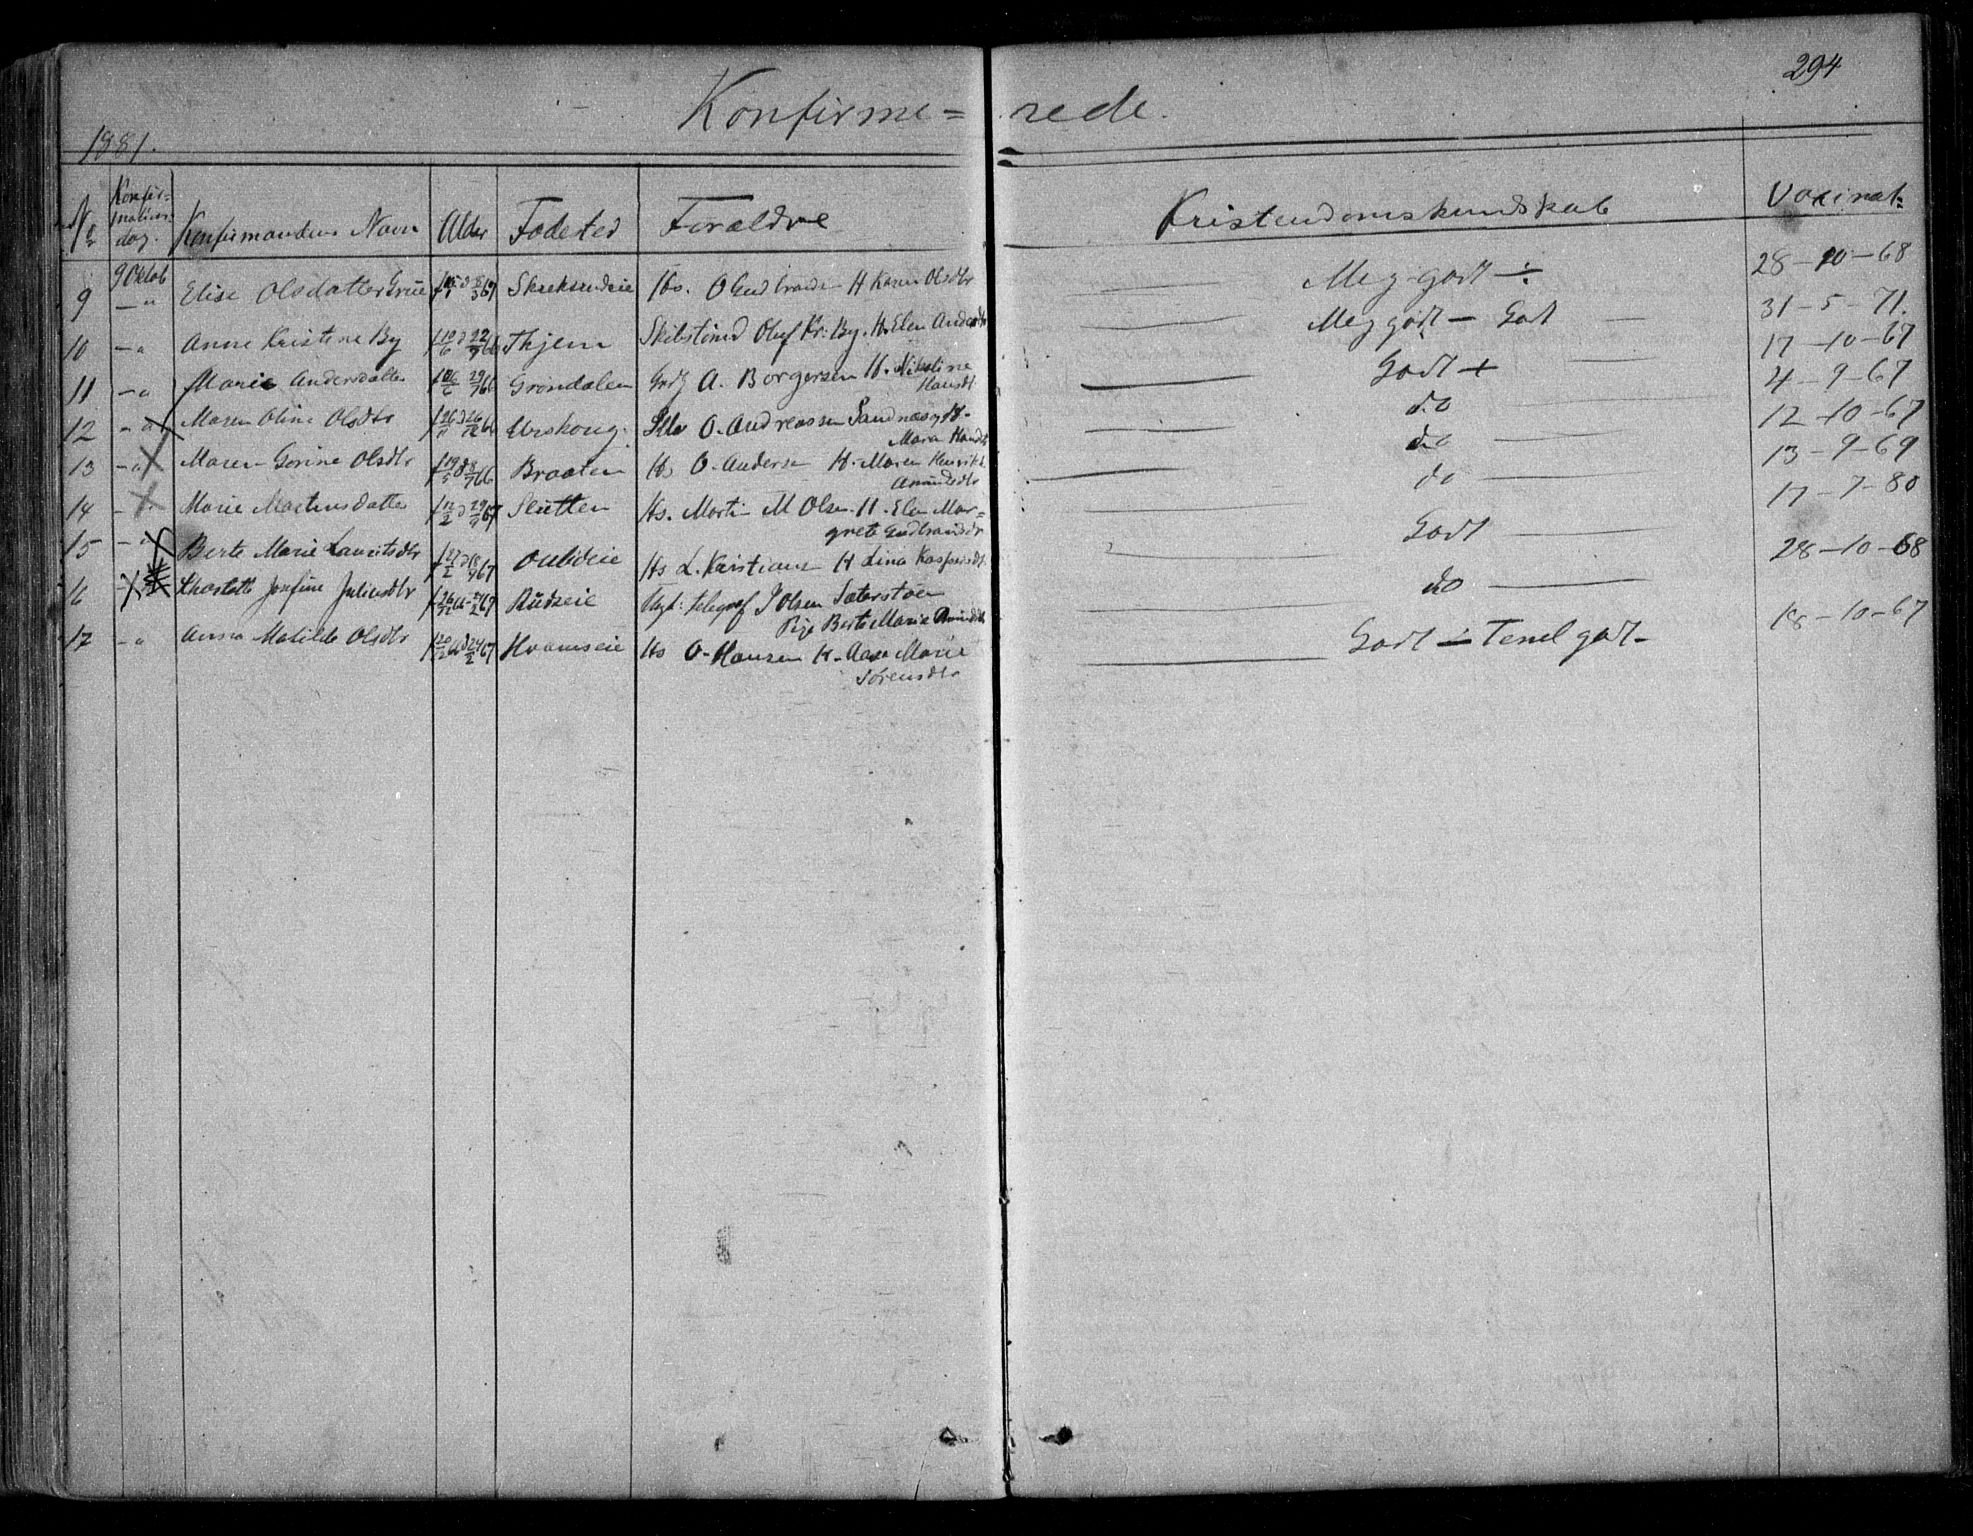 294
Konfirme= rede.
1881.
No Konfir-mations-dag. Konfirmandens Navn Alder Fødested Forældre Kristendomskundskab Vaxinat:
9 9 Oktob - " Elise Olsdatter Grue 3/67 Skreksrudeie Hs. O Gudbrandsen H Karen Olsdtr Meg godt ÷ 28-10-68
10 - " Anne Kristine By f 10/6 d 22/7 66 Thjem Skibstømd Oluf Kr: By. H. Elen Andersdtr Meg godt - Godt 31-5-71.
11 - " Marie Andersdatter 29/7 66 Grøndalen A. Borgersen H. Nikoline Hansdt. Godt + 17-10-67
12 - " Maren Oline Olsdtr f 26/11 d 26/12 66 Urskoug. O. Andreassen Sandnæs H. Maren Hansdtr do 4-9-67
13 - " Maren Gorine Olsdtr f 19/5 d 8/7 66 Braaten Hs O. Andersen H. Maren Henrikke Amundsdtr do 12-10-67
14 - " Marie Martinsdatter f 12/2 d 29/9 67 Slutten Hs. Martin M Olsen. H. Elen Mar= grete Gudbrandsdtr do 13-9-69
15 - " Berte Marie Lauritsdtr f 27/2 d 67 Oulieie Hs L. Kristians H Lina Kaspersdt. Godt 17-7-80
16 Josfine Juliusdtr f 26/12 66 - 24/2 67 Rudseie Ungk: telegraf J Olsen Sæterstøen Pige Berte Marie do 28-10-68
17 - " Anna Matilde Olsdtr f 20/12 66 d 24/2 67 Hvamseie Hs O. Hansen H. Aase Marie Sørensdtr Godt ÷ Temel godt - 18-10-67